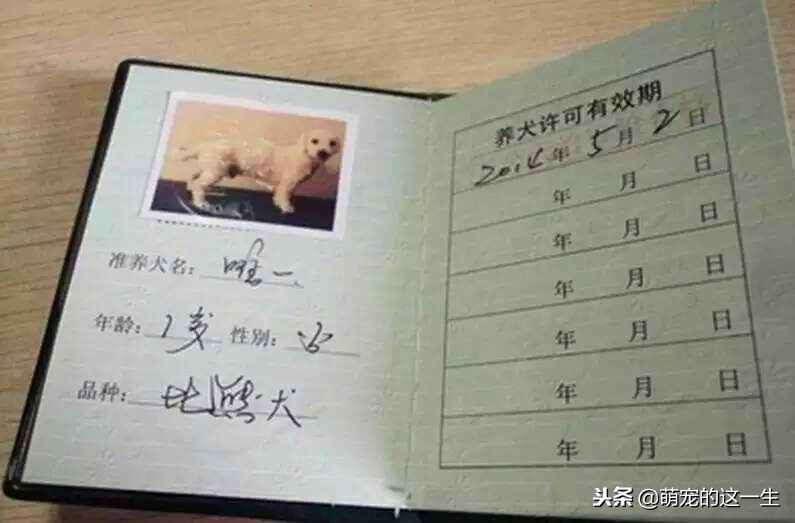 准养犬名：唯一
年龄：1岁 性别：公
品种：比熊犬
养犬许可有效期
2014年5月2日
年 月 日
年 月 日
年 月 日
年 月 日
年 月 日
年 月 日
头条 @萌宠的这一生